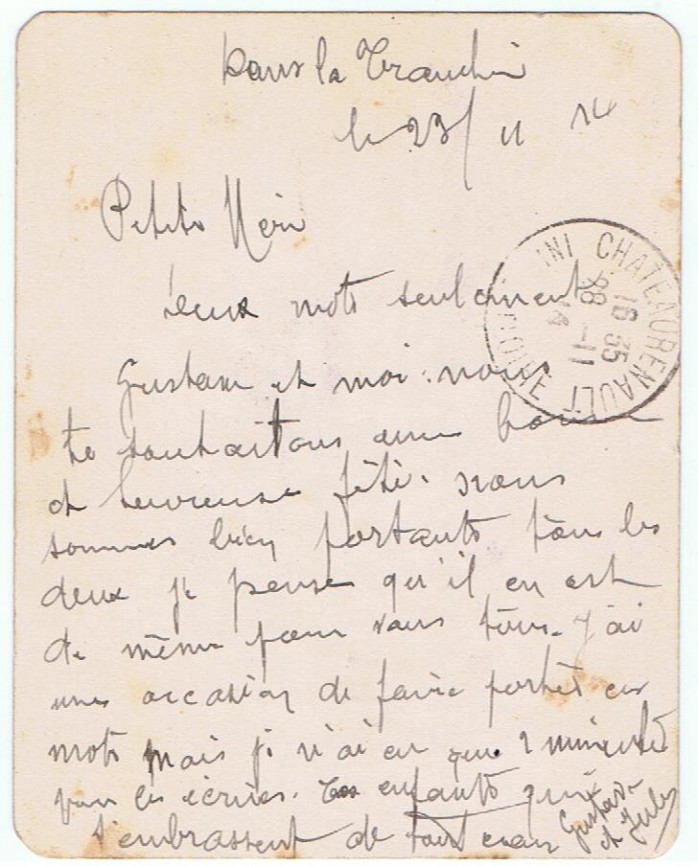 Dans la Tranchée
le 23/11 14
Petite Mère
Deux mots seulement
Gustave et moi nous
te souhaitons une bonne
et heureuse fête. nous
sommes bien portants tous les
deux je pense qu'il en est
de même pour vous tous. J'ai
une occasion de faire porter ces
mots mais je n'ai eu que 2 minutes
pour les écrire. Tes enfants qui
t'embrassent de tout cœur
Gustave
et Jules
CHATEAURENAULT
16 35
28 -11
14